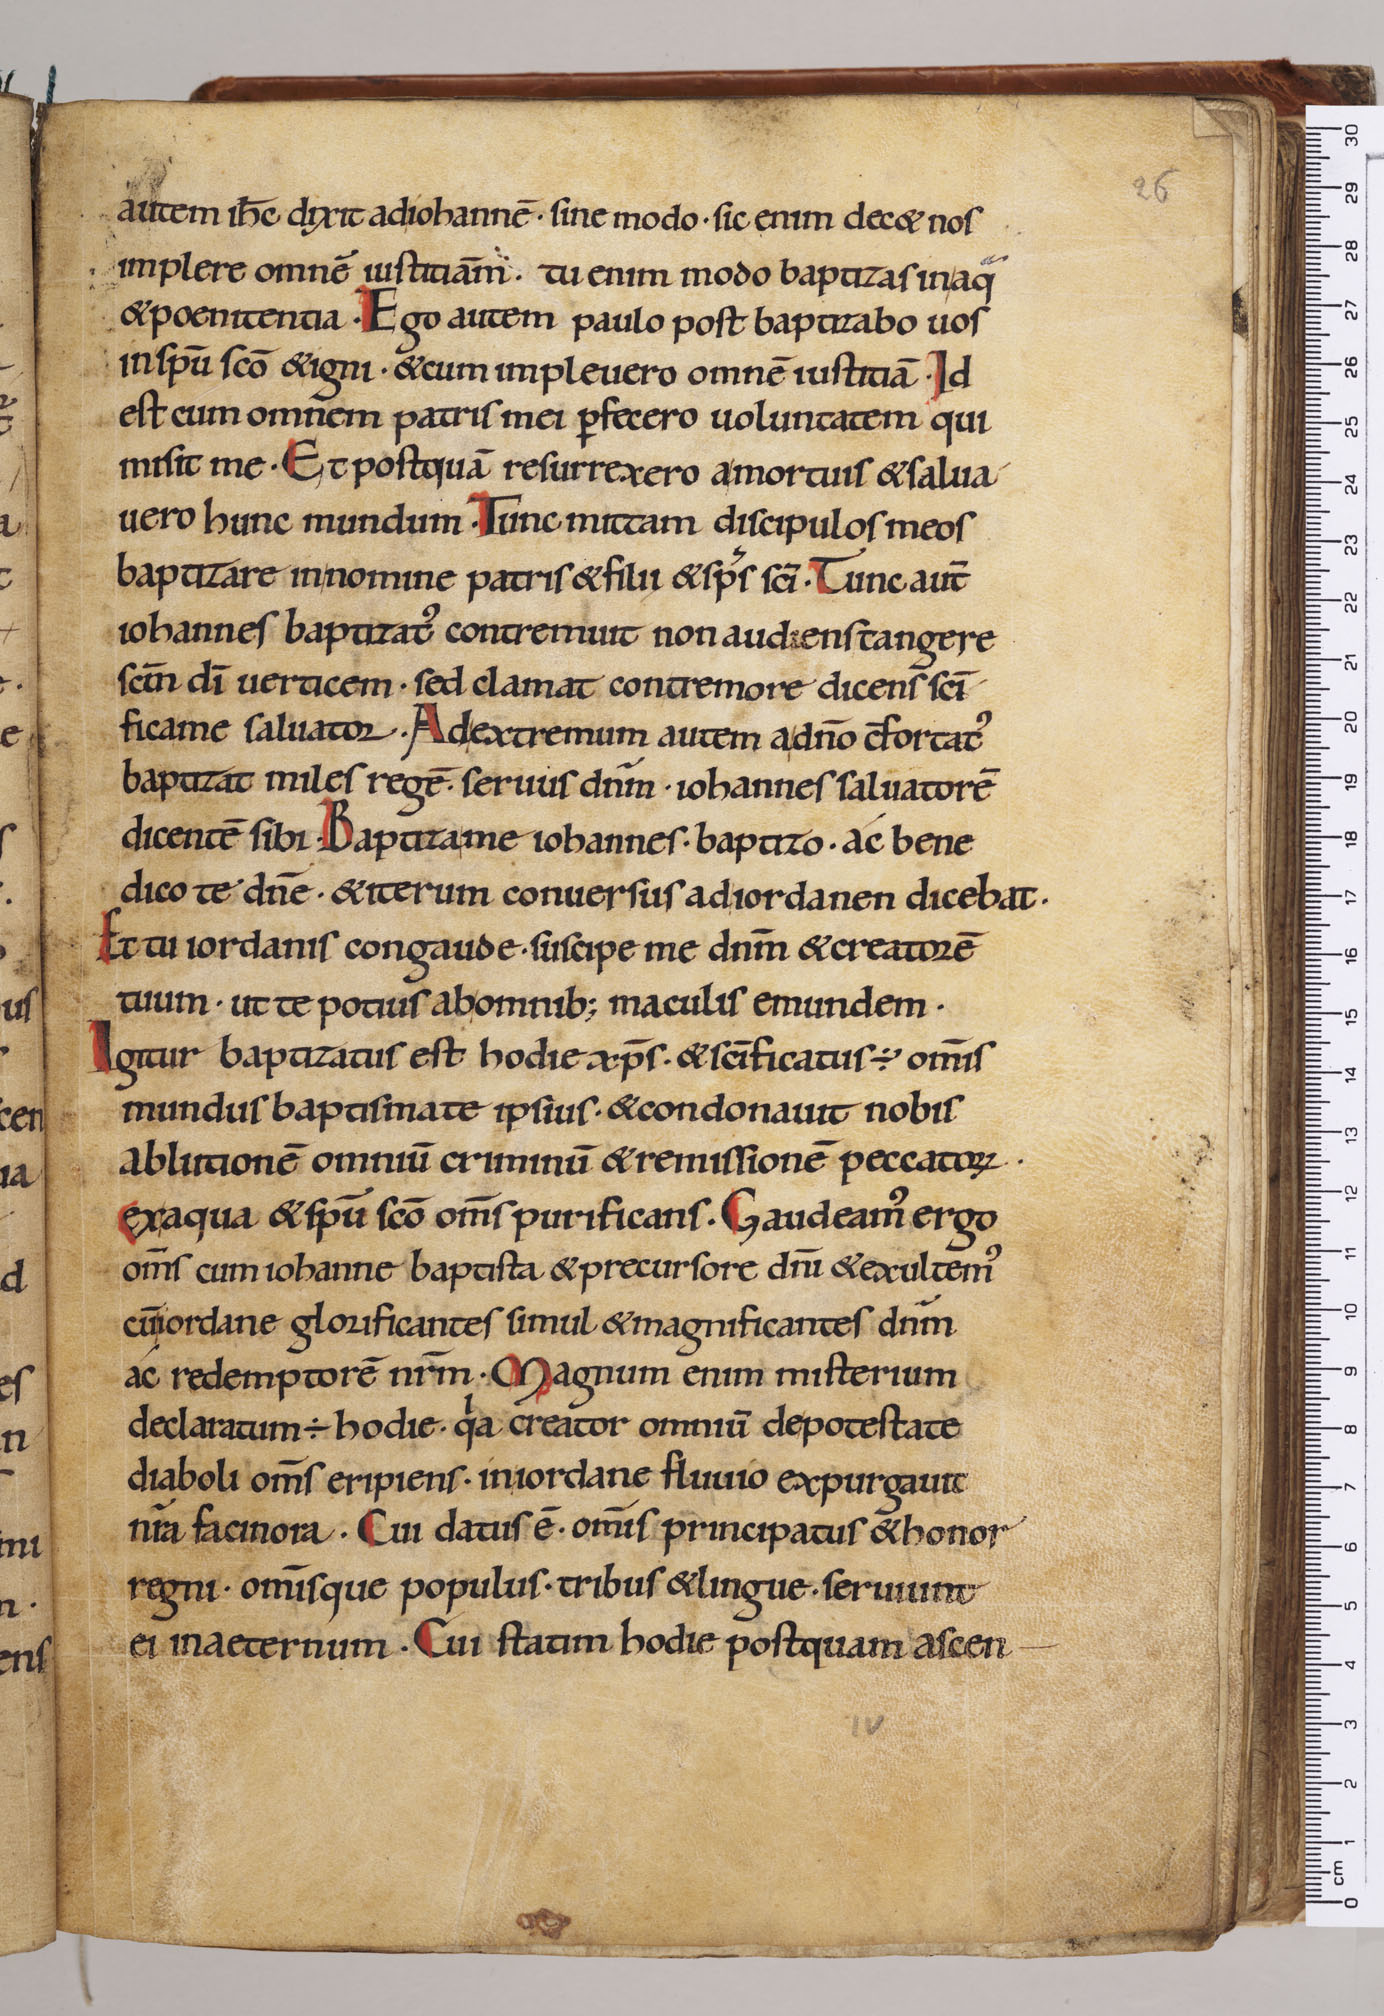 26
autem ih̄c dixit adiohannē · sine modo · sic enim dec& nos
implere omnē iustitiām̄ · tu enim modo baptizas inaq̄
&poenitentia · Ego autem paulo post baptizabo uos
inspū scō &igni · &cum impleuero omnē iustitiā · Id
est cum omnem patris mei ꝑfecero uoluntatem qui
misit me · Et postquā resurrexero amortuis &salua
uero hunc mundum · Tunc mittam discipulos meos
baptizare innomine patris &filii &sp̄s scī · Tunc aut̄
iohannes baptizat᾽ contremuit non audens tangere
scm̄ dī uerticem · sed clamat contremore dicens scī
ficame saluator · Adextremum autem adn̄o cfortat᾽
baptizat miles regē · seruus dnm̄ · iohannes saluatorē
dicentē sibi · Baptizame iohannes · baptizo · ac bene
dico te dn̄e · &iterum conuersus adiordanen dicebat ·
Et tu iordanis congaude · suscipe me dnm̄ &creatorē
tuum · ut te potius abomnib; maculis emundem ·
Igitur baptizatus est hodie xp̄s · &scīficatus ÷ omīs
mundus baptismate ipsius · &condonauit nobis
ablutionē omniū criminū &remissionē peccatoꝝ ·
exaqua &spū scō om̄s purificans · Gaudeam᾽ ergo
om̄s cum iohanne baptista &precursore dnī &exultem᾽
cūiordane glorificantes simul &magnificantes dnm̄
ac redemptorē nrm̄ · Magnum enim misterium
declaratum ÷ hodie · qa creator omniū depotestate
diaboli om̄s eripiens · iniordane fluuio expurgauit
nr̄a facinora · Cui datus ē · omīs principatus &honor
regni · omīsque populus · tribus &lingue · seruiunt
ei inaeternum · Cui statim hodie postquam ascen
IV